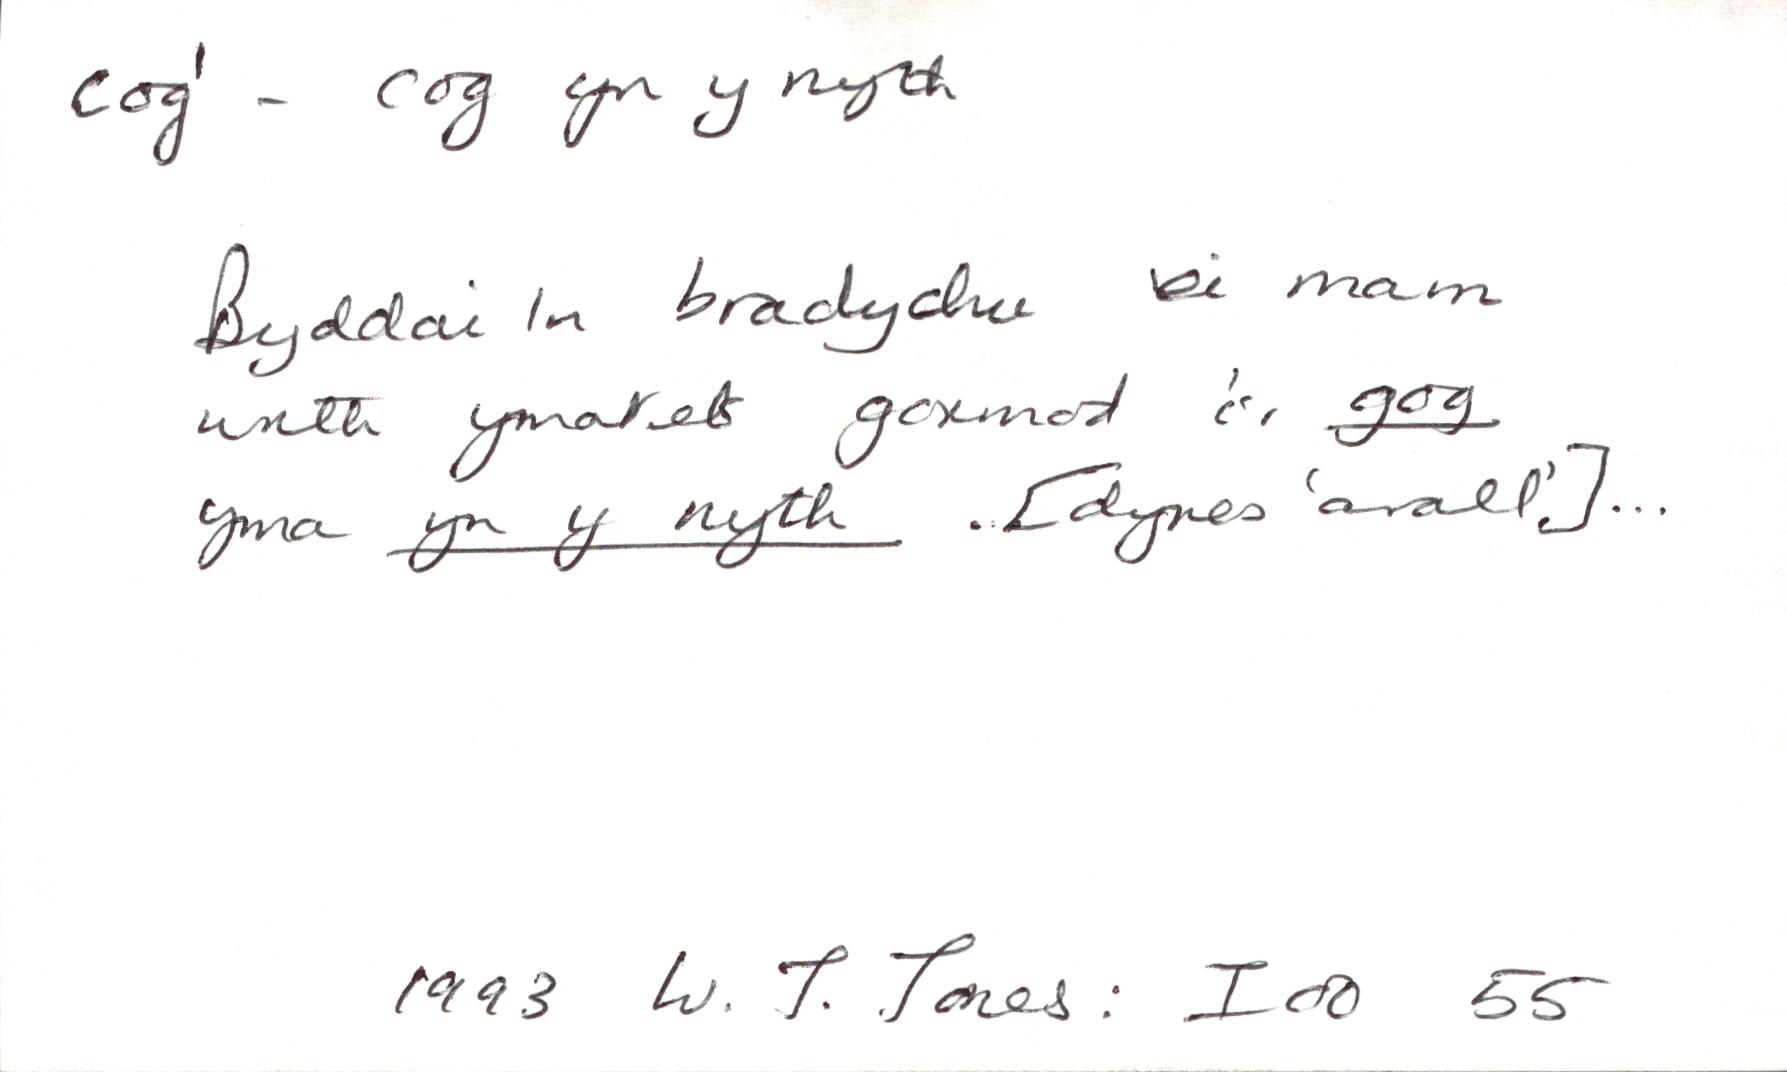 cog¹ - cog yn y nyth
Byddai'n bradychu ei mam
wrth ymarfer gormod i'r gog
yma yn y nyth. [dynes 'arall']...
1993 W. J. Jones: IOO 55